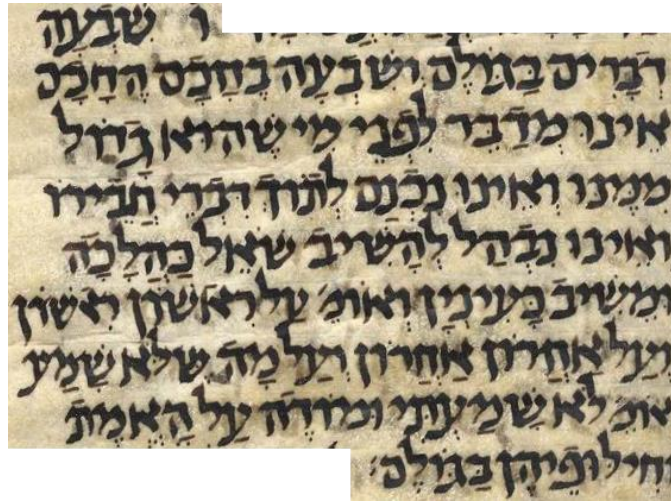 שבעה
דברים בגולם ושבעה בחכם החכם
אינו מדבר לפני מי שהוא גדול
ממינו ואינו נכנס לתוך דברי חבירו
ואינו נבהל להשיב שואל כהלכה
ומשיב כעינין ואומ׳ על ראשון ראשון
ועל אחרון אחרון ועל מה שלא שמע
אומ׳ לא שמעתי ומודה על האמת
וחילופיהן בגולם׃